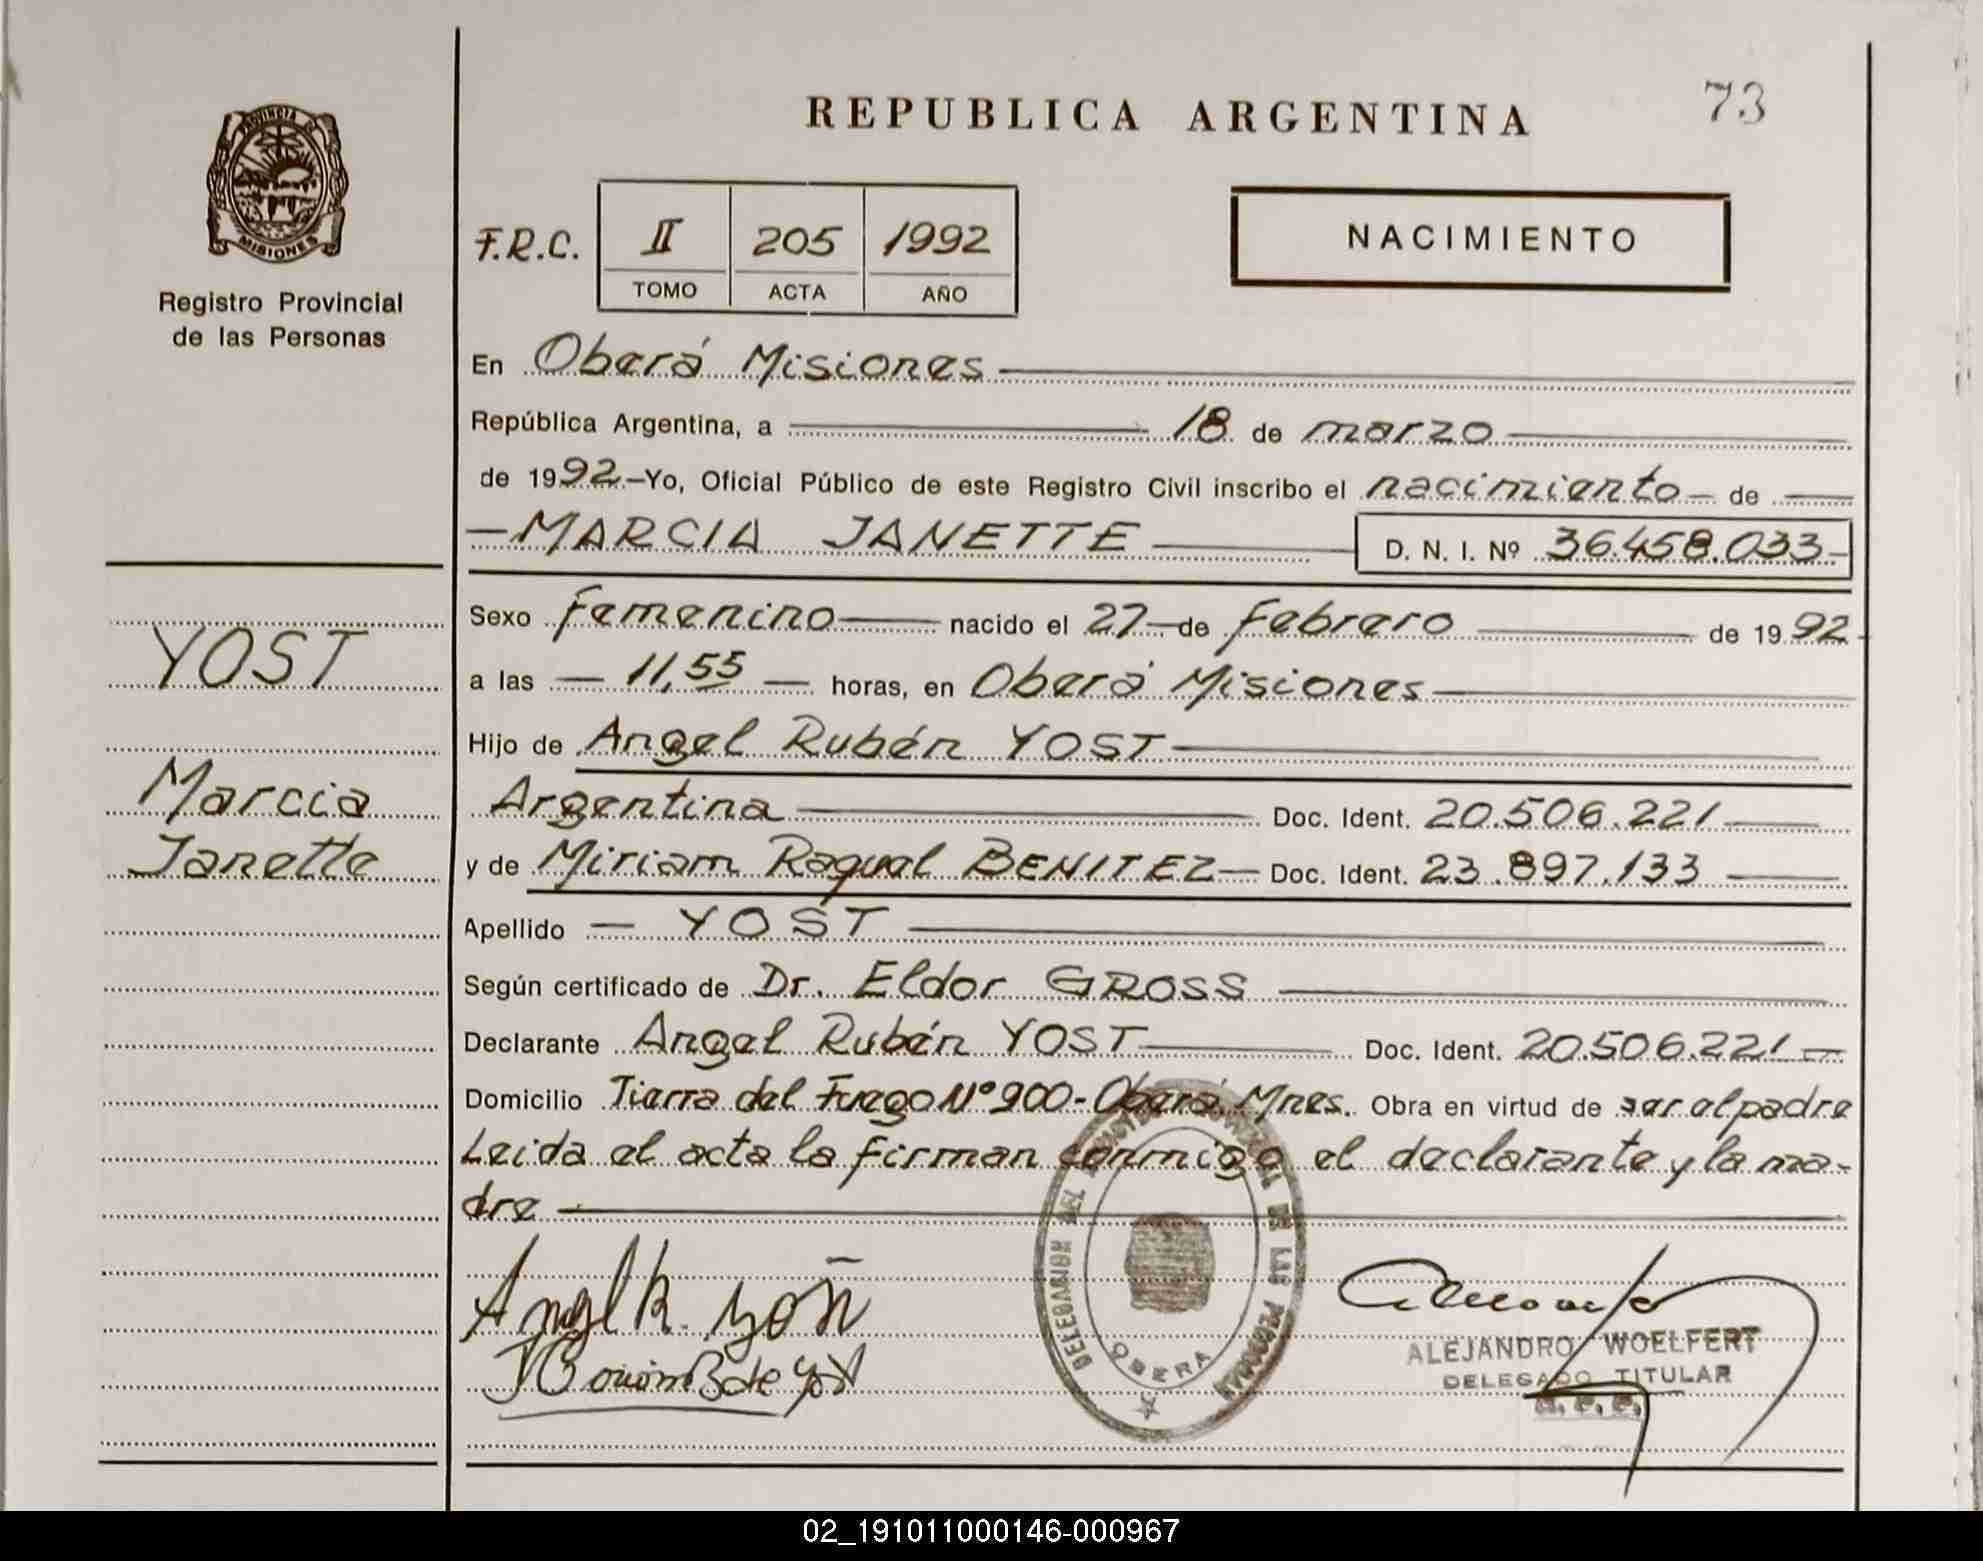 REPUBLICA ARGENTINA
73
PROVINCIA DE
MISIONES
Registro Provincial
de las Personas
F.R.C.
II 205 1992
TOMO ACTA AÑO
NACIMIENTO
En Oberá Misiones
República Argentina, a 18 de marzo
de 1992 - Yo, Oficial Público de este Registro Civil inscribo el nacimiento - de
- MARCIA JANETTE D. N. I. Nº 36.458.033 -
Sexo femenino nacido el 27 - de febrero de 1992
a las - 11,55 - horas, en Oberá Misiones
Hijo de Angel Rubén YOST
Argentina Doc. Ident. 20.506.221
y de Miriam Raquel BENITEZ - Doc. Ident. 23.897.133
Apellido - YOST
Según certificado de Dr. Eldor GROSS
Declarante Angel Rubén YOST Doc. Ident. 20.506.221 -
Domicilio Tierra del Fuego Nº 900 - Oberá Mnes. Obra en virtud de ser al padre
Leida el acta la firman conmigo el declarante y la ma-
dre
YOST
Marcia
Janette
DELEGACION DEL REGISTRO PROVINCIAL DE LAS PERSONAS
OBERA
ALEJANDRO WOELFERT
DELEGADO TITULAR
02_191011000146-000967